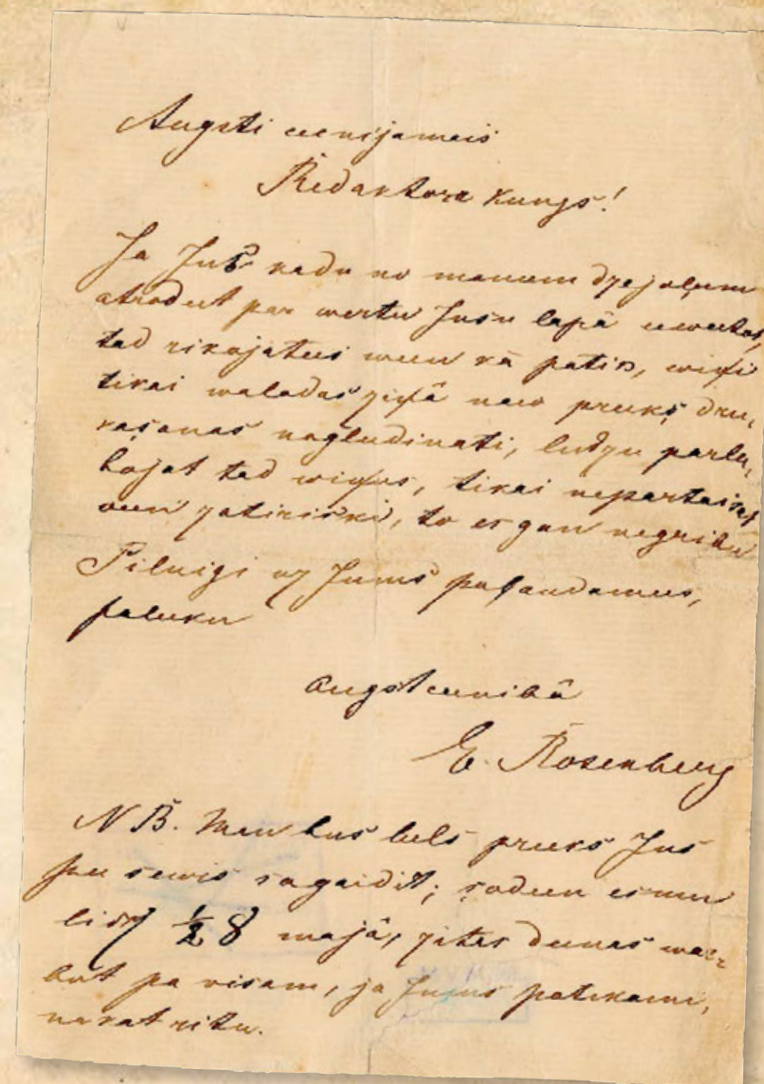 Augsti ceenijamais
Redaktora kungs!
Ja Jus kadu no manam dzejolum
atrodat par wertu Jusu lapâ
tad rikojatees ween kâ patik, wiņi
tikai waladas ziņâ naw preekş dru-
kaşanas nogludinati, ludzu parlu-
kojat tad wiņus, tikai nepartaisat
ween satiriski, to es gan negribu
Pilnigi uz Jums paļaudamees,
paleeku
Augstceenibâ
E. Rosenberg
NB. Man bus leels preeks Jus
pee sewis sagaidit; şodeen esmu
lidz ½ 8 majâ, zitas deenas war-
but pa wisam, ja Jums patikami,
nakat ritu.